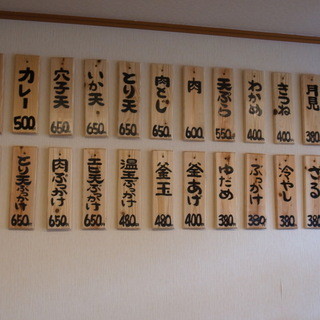 月見 380
きつね 400
わかめ 400
天ぷら 550
肉 650
肉とじ 650
とり天 650
いか天 650
穴子天 650
カレー 500
ざる 380
冷やし 380
ぶっかけ 380
ゆだめ 380
釜あげ 400
釜玉 480
温玉ぶっかけ 480
肉ぶっかけ 650
とり天ぶっかけ 650